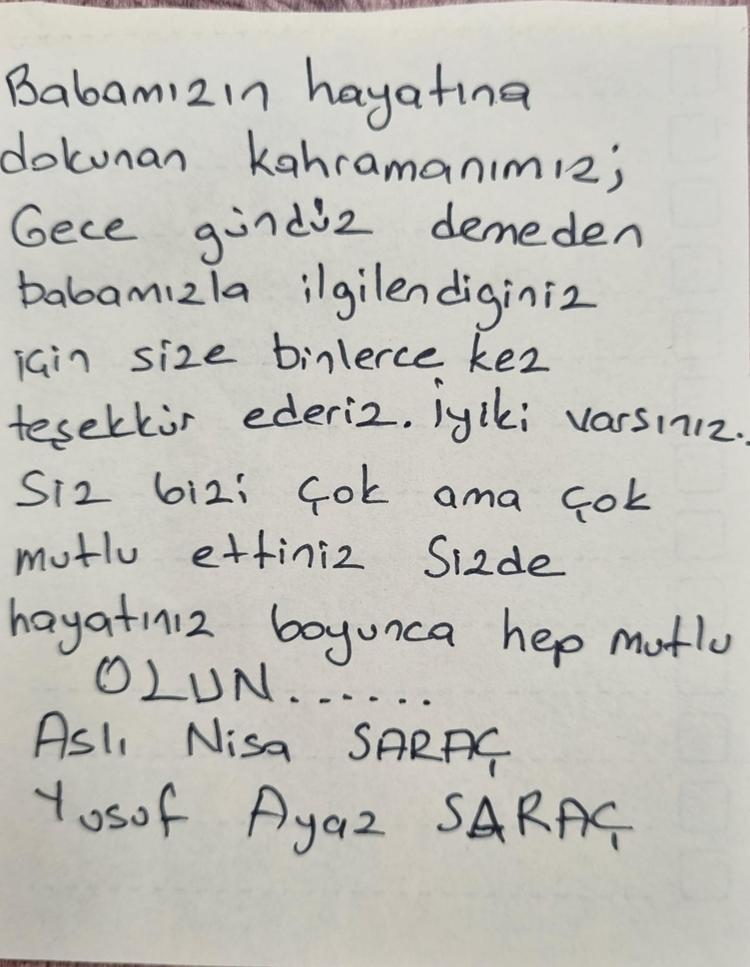 Babamızın hayatına
dokunan kahramanımız;
Gece gündüz demeden
babamızla ilgilendiginiz
için size binlerce kez
teşekkür ederiz. İyiki varsınız..
Siz bizi çok ama çok
mutlu ettiniz Sizde
hayatınız boyunca hep mutlu
OLUN......
Aslı Nisa SARAÇ
Yusuf Ayaz SARAÇ